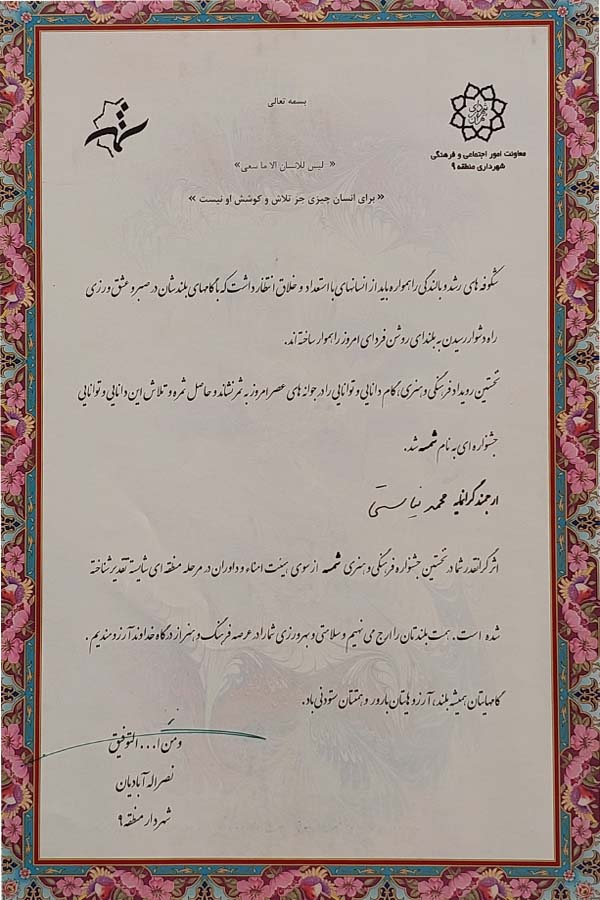 بسمه تعالی
شهرداری تهران
معاونت امور اجتماعی و فرهنگی
شهرداری منطقه ۹
« لیس للانسان الا ما سعی»
« برای انسان چیزی جز تلاش و کوشش او نیست »
شکوفه های رشد و بالندگی را همواره باید از انسانهای با استعداد و خلاق انتظار داشت که با گامهای بلندشان در صبر و عشق ورزی
راه دشوار رسیدن به بلندای روشن فردای امروز را هموار ساخته اند.
نخستین رویداد فرهنگی و هنری، گام دانایی و توانایی را در جوانه های عصر امروز به ثمر نشاند و حاصل ثمره و تلاش این دانایی و توانایی
جشنواره ای به نام شمسه شد.
ارجمند گرانمایه محمد
اثر گرانقدر شما در نخستین جشنواره فرهنگی و هنری شمسه از سوی هیئت امناء و داوران در مرحله منطقه ای شایسته تقدیر شناخته
شده است. همت بلندتان را ارج می نهیم و سلامتی و بهروزی شما را در عرصه فرهنگ و هنر از درگاه خداوند آرزومندیم.
گامهایتان همیشه بلند، آرزوهایتان بارور و همتتان ستودنی باد.
و من ا... التوفیق
نصراله آبادیان
شهردار منطقه ۹